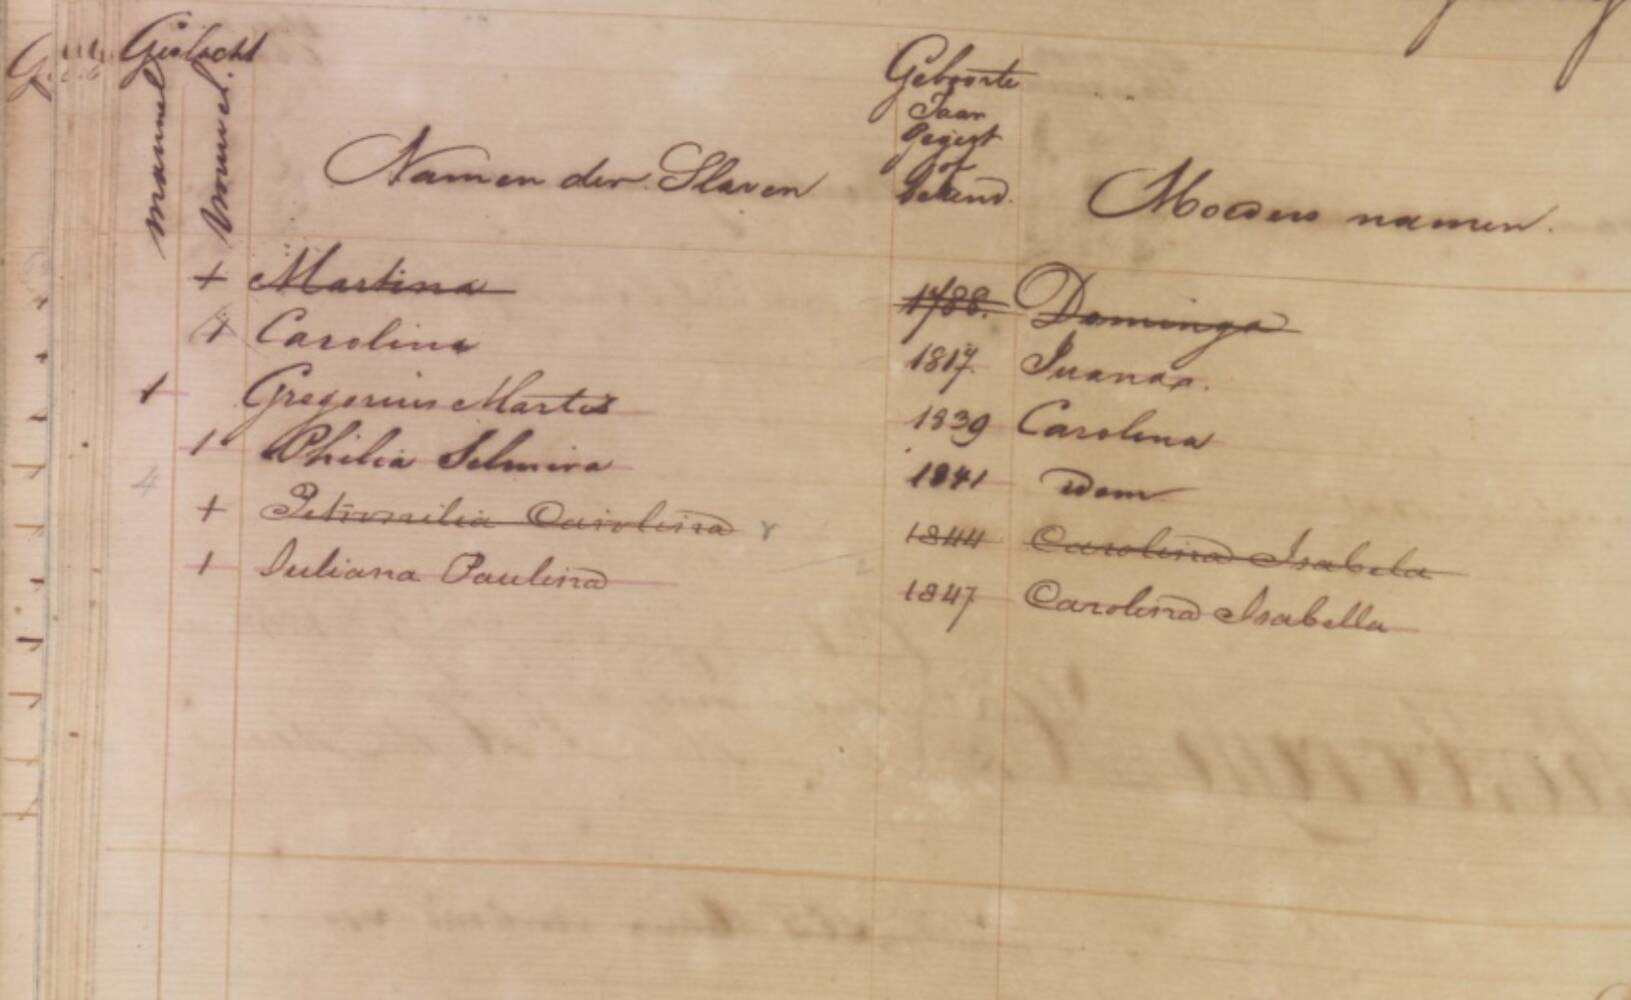 Geslacht
mannel.
vrouwel.
Namen der Slaven
Geboorte
Jaar
gegist
of
bekend.
Moeders namen.
+ Martina 1788. Dominga
+ Carolina 1817. Juana
1 Gregorius Martis 1839 Carolina
1 Philia Selmira 1841 Idem
4
+ Petronilia Carolina 1844 Carolina Isabela
1 Juliana Paulina 1847 Carolina Isabella